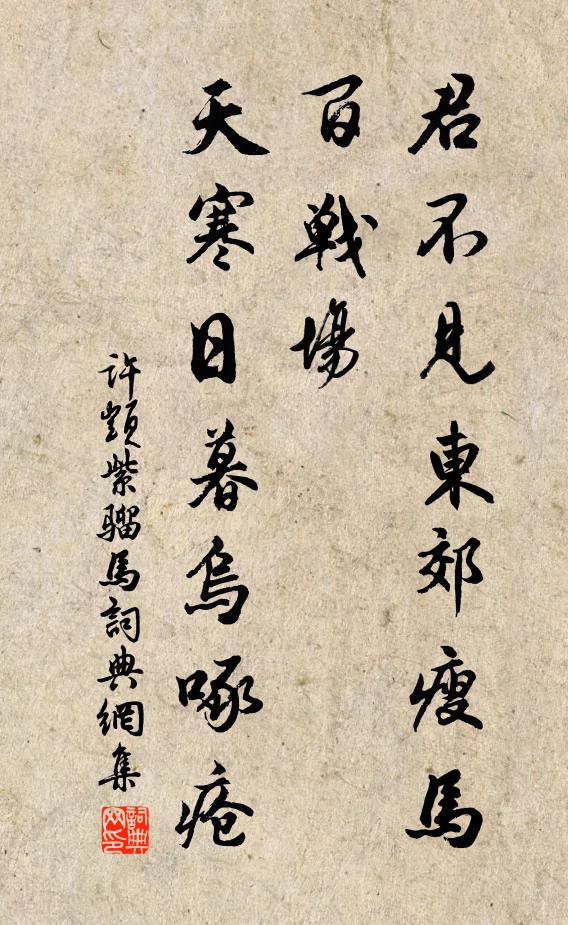 君不見東郊瘦馬
百戰場
天寒日暮烏啄瘡
許顗紫騮馬詞典網集
詞典网印